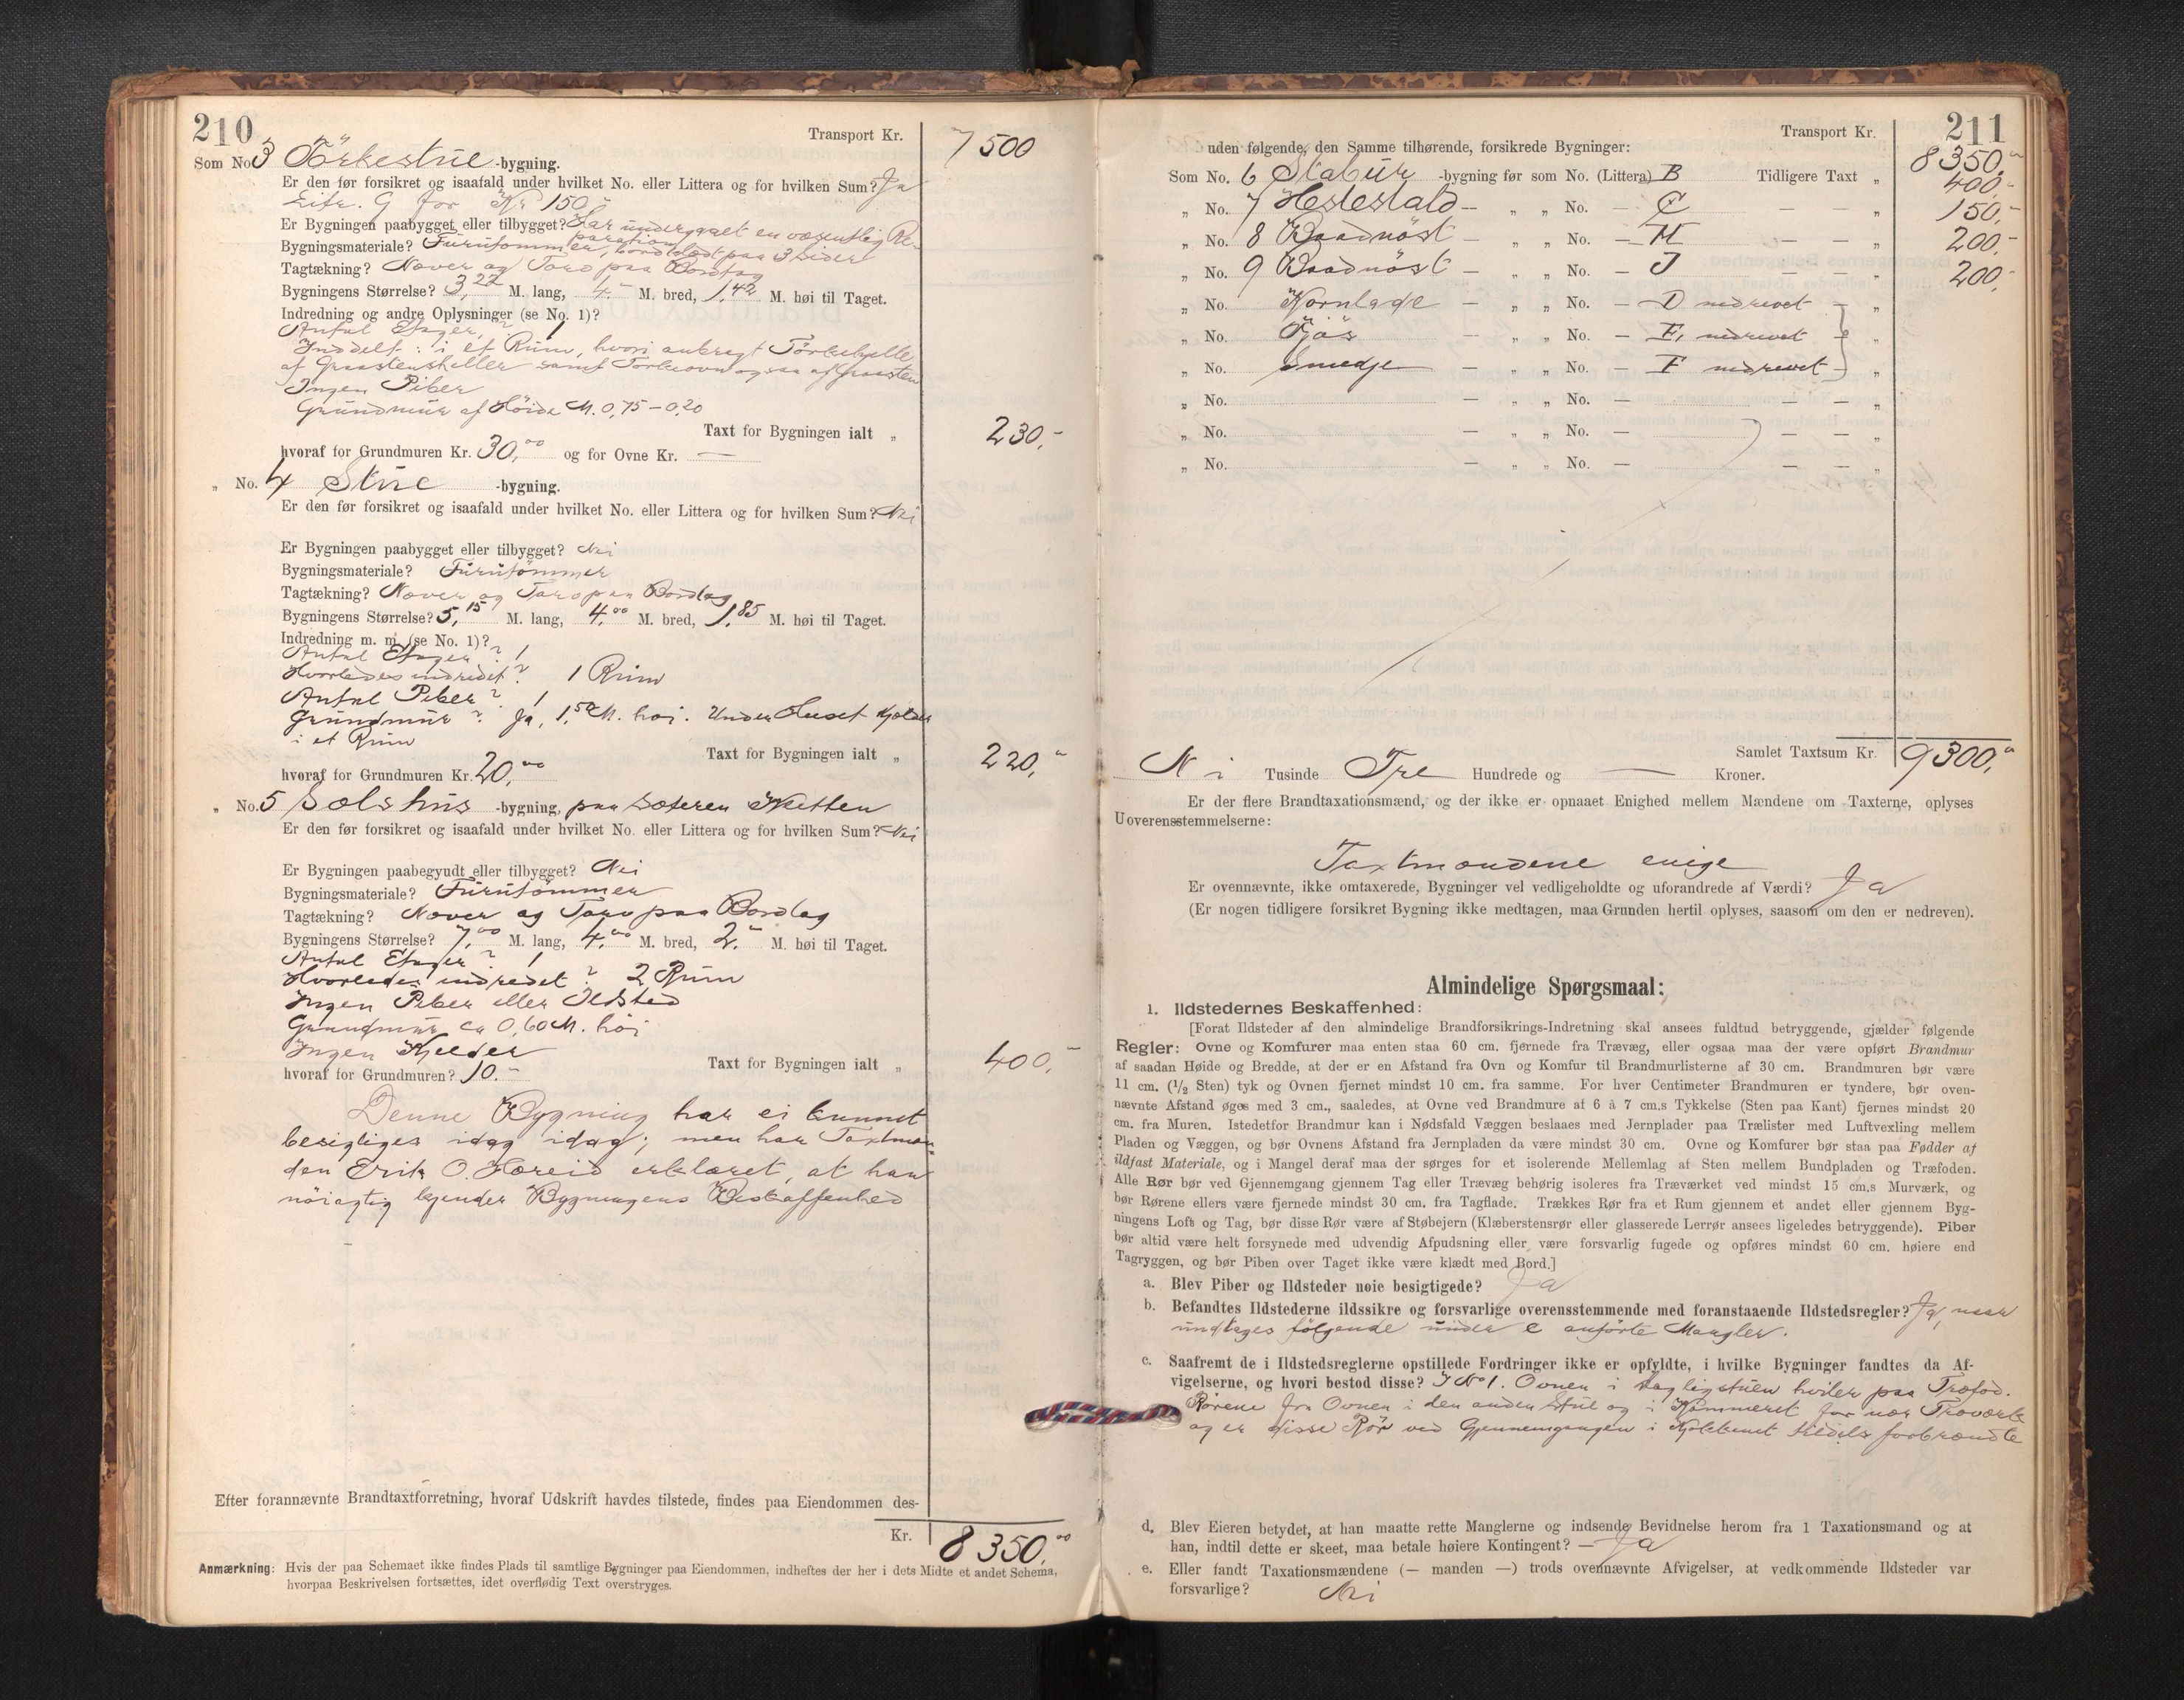 210
Transport Kr. 7500
Som No 3 Törkestue -bygning.
Er den før forsikret og isaafald under hvilket No. eller Littera og for hvilken Sum? Ja
Litr. G for Kr 150,-
Er Bygningen paabygget eller tilbygget? Har undergaaet en væsentlig Re-
paration
Bygningsmateriale? Furutømmer, bordklædt paa 3 Sider
Tagtækning? Næver og Torv paa Bordtag
Bygningens Størrelse? 3,22 M. lang, 4,- M. bred, 1,42 M. høi til Taget.
Indredning og andre Oplysninger (se No. 1)?
Antal Etager? 1
Inddelt: i et Rum, hvori anbragt Törkehjelle
af Graastensheller samt Törkeovn ogsaa af Graasten
Ingen Piber
Grundmur af Höide M. 0,75 - 0,20
Taxt for Bygningen ialt „ 230,-
hvoraf for Grundmuren Kr. 30,00 og for Ovne Kr. —
„ No. 4 Stue -bygning.
Er den før forsikret og isaafald under hvilket No. eller Littera og for hvilken Sum? Nei
Er Bygningen paabygget eller tilbygget? Nei
Bygningsmateriale? Furutømmer
Tagtækning? Næver og Torv paa Bordtag
Bygningens Størrelse? 5,15 M. lang, 4,00 M. bred, 1,85 M. høi til Taget.
Indredning m. m. (se No. 1)?
Antal Etager? 1
Hvorledes indredet? 1 Rum
Antal Piber? 1
Grundmur? Ja, 1,50 M. høi. Under Huset Kjelder
i et Rum
Taxt for Bygningen ialt „ 220,"
hvoraf for Grundmuren Kr. 20,00
„ No. 5 Sælshus -bygning, paa Sæteren Kutten
Er den før forsikret og isaafald under hvilket No. eller Littera og for hvilken Sum? Nei
Er Bygningen paabegyndt eller tilbygget? Nei
Bygningsmateriale? Furutømmer
Tagtækning? Næver og Torv paa Bordtag
Bygningens Størrelse? 7,00 M. lang, 4,00 M. bred, 2,- M. høi til Taget.
Antal Etager? 1
Hvorledes indredet? 2 Rum
Ingen Piber eller Ildsted
Grundmur ca 0,60 M. höi
Ingen Kjelder
Taxt for Bygningen ialt „ 400,-
hvoraf for Grundmuren? 10.-
Denne Bygning har ei kunnet
besigtiges idag idag; men har Taxtman-
den Erik O. Hæreid erklæret, at han
nöiagtig kjender Bygningens Beskaffenhed
Efter forannævnte Brandtaxtforretning, hvoraf Udskrift havdes tilstede, findes paa Eiendommen des-
Kr. 8350,00
Anmærkning: Hvis der paa Schemaet ikke findes Plads til samtlige Bygninger paa Eiendommen, indheftes der her i dets Midte et andet Schema,
hvorpaa Beskrivelsen fortsættes, idet overflødig Text overstryges.
211
Transport Kr. 8350,"
uden følgende, den Samme tilhørende, forsikrede Bygninger:
Som No. 6 Stabur -bygning før som No. (Littera) B Tidligere Taxt „ 400,-
„ No. 7 Hestestald — „ „ No. — C — — „ 150,-
„ No. 8 Baadnöst — „ „ No. — H — — „ 200,-
„ No. 9 Baadnöst — „ „ No. — I — — „ 200,-
„ No. Kornlade — „ „ No. — D nedrevet — „
„ No. Fjös — „ „ No. — E, nedrevet „
„ No. Smedje — „ „ No. — F nedrevet — „
„ No. — „ „ No. — — — „
„ No. — „ „ No. — — — „
„ No. — „ „ No. — — — „
Samlet Taxtsum Kr. 9300,"
Ni Tusinde Tre Hundrede og — Kroner.
Er der flere Brandtaxationsmænd, og der ikke er opnaaet Enighed mellem Mændene om Taxterne, oplyses
Uoverensstemmelserne:
Taxtmændene enige
Er ovennævnte, ikke omtaxerede, Bygninger vel vedligeholdte og uforandrede af Værdi? Ja
(Er nogen tidligere forsikret Bygning ikke medtagen, maa Grunden hertil oplyses, saasom om den er nedreven).
Almindelige Spørgsmaal:
1. Ildstedernes Beskaffenhed:
[Forat Ildsteder af den almindelige Brandforsikrings-Indretning skal ansees fuldtud betryggende, gjælder følgende
Regler: Ovne og Komfurer maa enten staa 60 cm. fjernede fra Trævæg, eller ogsaa maa der være opført Brandmur
af saadan Høide og Bredde, at der er en Afstand fra Ovn og Komfur til Brandmurlisterne af 30 cm. Brandmuren bør være
11 cm. (1/2 Sten) tyk og Ovnen fjernet mindst 10 cm. fra samme. For hver Centimeter Brandmuren er tyndere, bør oven-
nævnte Afstand øges med 3 cm., saaledes, at Ovne ved Brandmure af 6 à 7 cm.s Tykkelse (Sten paa Kant) fjernes mindst 20
cm. fra Muren. Istedetfor Brandmur kan i Nødsfald Væggen beslaaes med Jernplader paa Trælister med Luftvexling mellem
Pladen og Væggen, og bør Ovnens Afstand fra Jernpladen da være mindst 30 cm. Ovne og Komfurer bør staa paa Fødder af
ildfast Materiale, og i Mangel deraf maa der sørges for et isolerende Mellemlag af Sten mellem Bundpladen og Træfoden.
Alle Rør bør ved Gjennemgang gjennem Tag eller Trævæg behørig isoleres fra Træværket ved mindst 15 cm.s Murværk, og
bør Rørene ellers være fjernede mindst 30 cm. fra Tagflade. Trækkes Rør fra et Rum gjennem et andet eller gjennem Byg-
ningens Loft og Tag, bør disse Rør være af Støbejern (Klæberstensrør eller glasserede Lerrør ansees ligeledes betryggende). Piber
bør altid være helt forsynede med udvendig Afpudsning eller være forsvarlig fugede og opføres mindst 60 cm. høiere end
Tagryggen, og bør Piben over Taget ikke være klædt med Bord.]
a. Blev Piber og Ildsteder nøie besigtigede? Ja
b. Befandtes Ildstederne ildssikre og forsvarlige overensstemmende med foranstaaende Ildstedsregler? Ja, naar
undtages følgende under c anførte Mangler.
c. Saafremt de i Ildstedsreglerne opstillede Fordringer ikke er opfyldte, i hvilke Bygninger fandtes da Af-
vigelserne, og hvori bestod disse? I No 1. Ovnen i Dagligstuen hviler paa Træfod.
Rörene fra Ovnen i den anden Stue og i Kammeret for nær Træværk
og er disse Rör ved Gjennemgangen i Kjøkkenet tildels forbrændte
d. Blev Eieren betydet, at han maatte rette Manglerne og indsende Bevidnelse herom fra 1 Taxationsmand og at
han, indtil dette er skeet, maa betale høiere Kontingent? — Ja
e. Eller fandt Taxationsmændene (— manden —) trods ovennævnte Afvigelser, at vedkommende Ildsteder var
forsvarlige? Nei